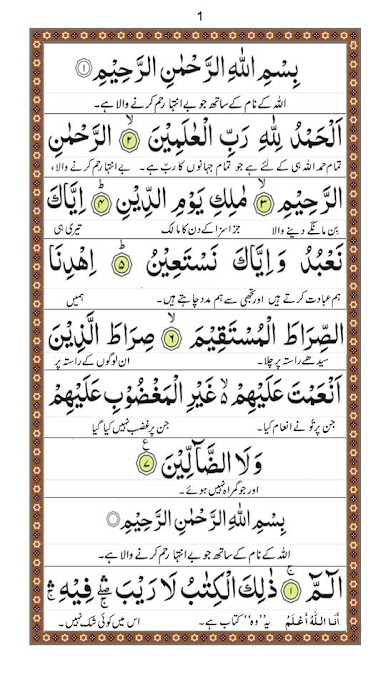 1
بِسْمِ اللّٰهِ الرَّحْمٰنِ الرَّحِيْمِ ۝۱
اللہ کے نام کے ساتھ جو بے انتہا رحم کرنے والا ہے۔
اَلْحَمْدُ لِلّٰهِ رَبِّ الْعٰلَمِيْنَ ۝۲ الرَّحْمٰنِ
تمام حمد اللہ ہی کے لئے ہے جو تمام جہانوں کا ربّ ہے۔ بے انتہا رحم کرنے والا،
الرَّحِيْمِ ۝۳ مٰلِكِ يَوْمِ الدِّيْنِ ۝۴ اِيَّاكَ
بن مانگے دینے والا جزا سزا کے دن کا مالک تیری ہی
نَعْبُدُ وَاِيَّاكَ نَسْتَعِيْنُ ۝۵ اِهْدِنَا
ہم عبادت کرتے ہیں اور تجھی سے ہم مدد چاہتے ہیں۔ ہمیں
الصِّرَاطَ الْمُسْتَقِيْمَ ۝۶ صِرَاطَ الَّذِيْنَ
سیدھے راستہ پر چلا۔ ان لوگوں کے راستہ پر
اَنْعَمْتَ عَلَيْهِمْ غَيْرِ الْمَغْضُوْبِ عَلَيْهِمْ
جن پر تُو نے انعام کیا۔ جن پر غضب نہیں کیا گیا
وَلَا الضَّآلِّيْنَ ۝۷
اور جو گمراہ نہیں ہوئے۔
بِسْمِ اللّٰهِ الرَّحْمٰنِ الرَّحِيْمِ
اللہ کے نام کے ساتھ جو بے انتہا رحم کرنے والا ہے۔
الٓمّٓ ۝۱ ذٰلِكَ الْكِتٰبُ لَا رَيْبَ ۛ فِيْهِ ۛ
اَنَا اللّٰهُ اَعْلَمُ یہ ”وہ“ کتاب ہے۔ اس میں کوئی شک نہیں۔